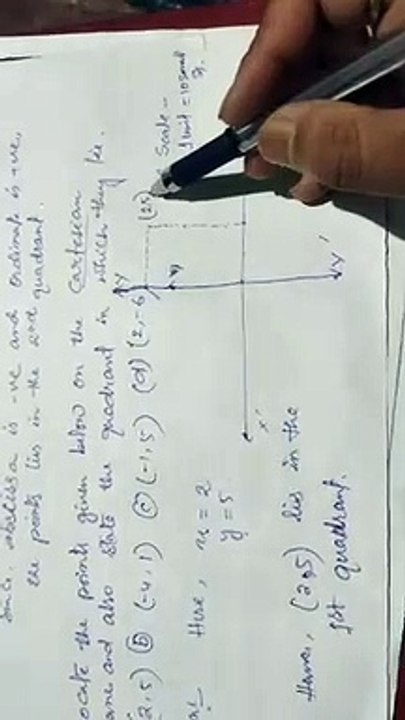 Since, abscissa is -ve and ordinate is +ve,
the points lies in the 2nd quadrant.
ocate the points given below on the Cartesian
ane and also state the quadrant in which they lie.
(2,5) (b) (-4,1) (c) (-1,5) (d) (2,-6)
Here, x = 2
y = 5
Y
(2,5)
Scale -
1 unit =
X'
Y'
Hence, (2,5) lies in the
1st quadrant.